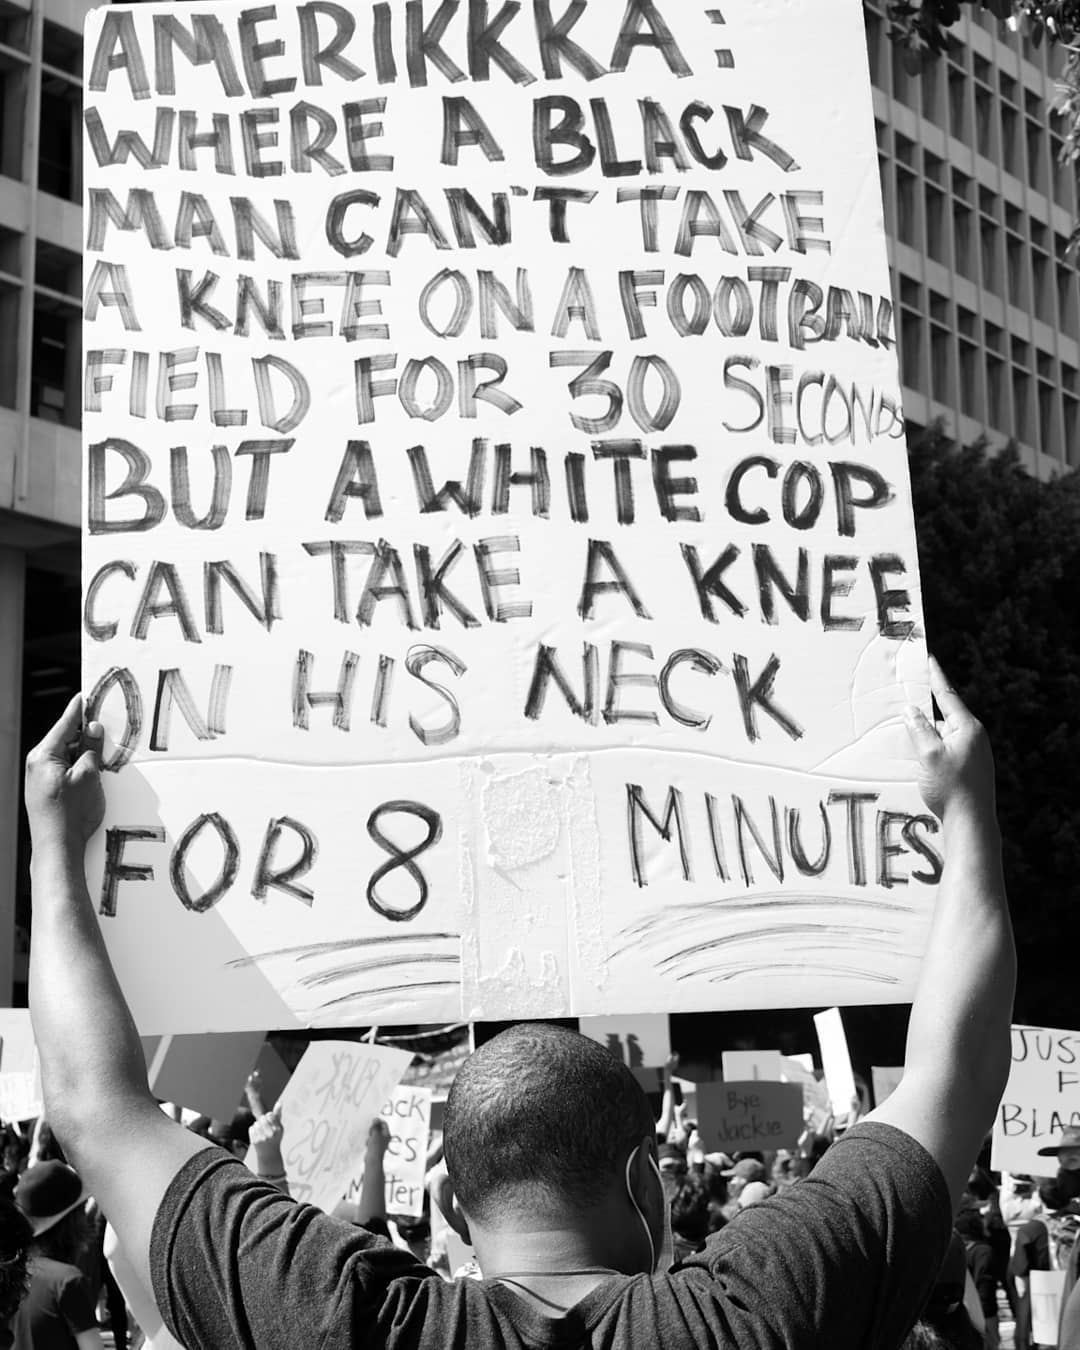 AMERIKKKA:
WHERE A BLACK
MAN CAN'T TAKE
A KNEE ON A FOOTBALL
FIELD FOR 30 SECONDS
BUT A WHITE COP
CAN TAKE A KNEE
ON HIS NECK
FOR 8 MINUTES
Bye
Jackie
Matter
JUS
F
BLA